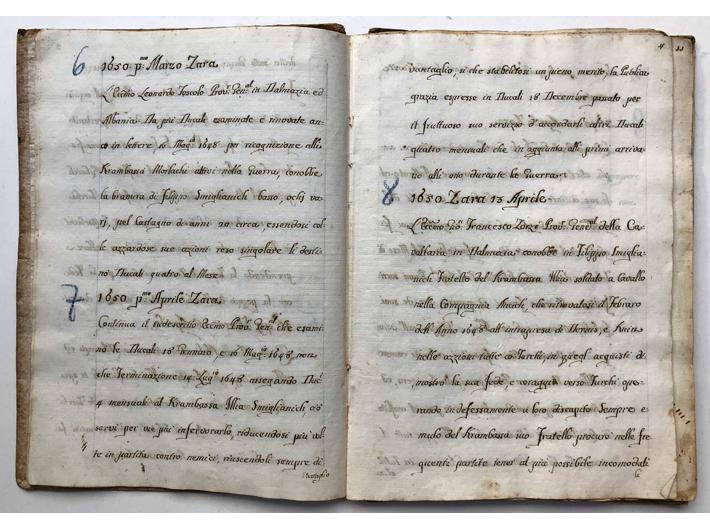 6 1650 pmo Marzo Zara
L'Eccmo Leonardo Foscolo Provr Genal in Dalmazia ed
Albania Da più Ducali esaminate e rinovate an-
co in lettere 10 Maggo 1648 per ricognizione alli
Krambassa Morlachi attivi nella Guerra, conobbe
la bravura di Filippo Smiglianich basso, ochj va-
rj, pel Castagno di anni 20 circa, essendosi col-
le azzardose sue azioni reso singolare li desti-
nò Ducati quattro al Mese
7 1650 pmo Aprile Zara
Continua il Eccmo Provr Genal che esami-
nò le Ducali 18 Gennaro e 16 Maggo 1648 non
che Terminazione 14 Lugo 1648 assegnando Duci
4 mensuali al Krambassa Illia Smiglianich ciò
servì per vie più infervorarlo, riducendosi più vol-
te in partita contro nemici, riuscendoli sempre di
4 11
vantaglio, sì che stabilitosi un pieno merito, la Publica
grazia espresse in Ducali 18 Decembre passato per
il fruttuoso suo servizio d'accordarli altri Ducati
quattro mensuali che in aggiunta alli primi arriva-
no alli otto durante la Guerra
8 1650 Zara 13 Aprile
L'Eccmo Francesco Zorzi Provr Genal della Ca-
vallaria in Dalmacia, conobbe in Filippo Smiglia-
nich Fratello del Krambassa Illia soldato a Cavallo
nella Compagnia che ritrovatosi d'Febraro
dell'Anno 1648 all'intrapresa di Dernis, e Knin
nelle azzioni tutte a Turchi, in quegl'acquisti di-
mostrò la sua fede, e coraggio verso Turchi ope-
rando indefessamente a loro discapito Sempre e-
mulo del Krambassa suo Fratello procurò nelle fre-
quenti partite tener al più possibile incomodati